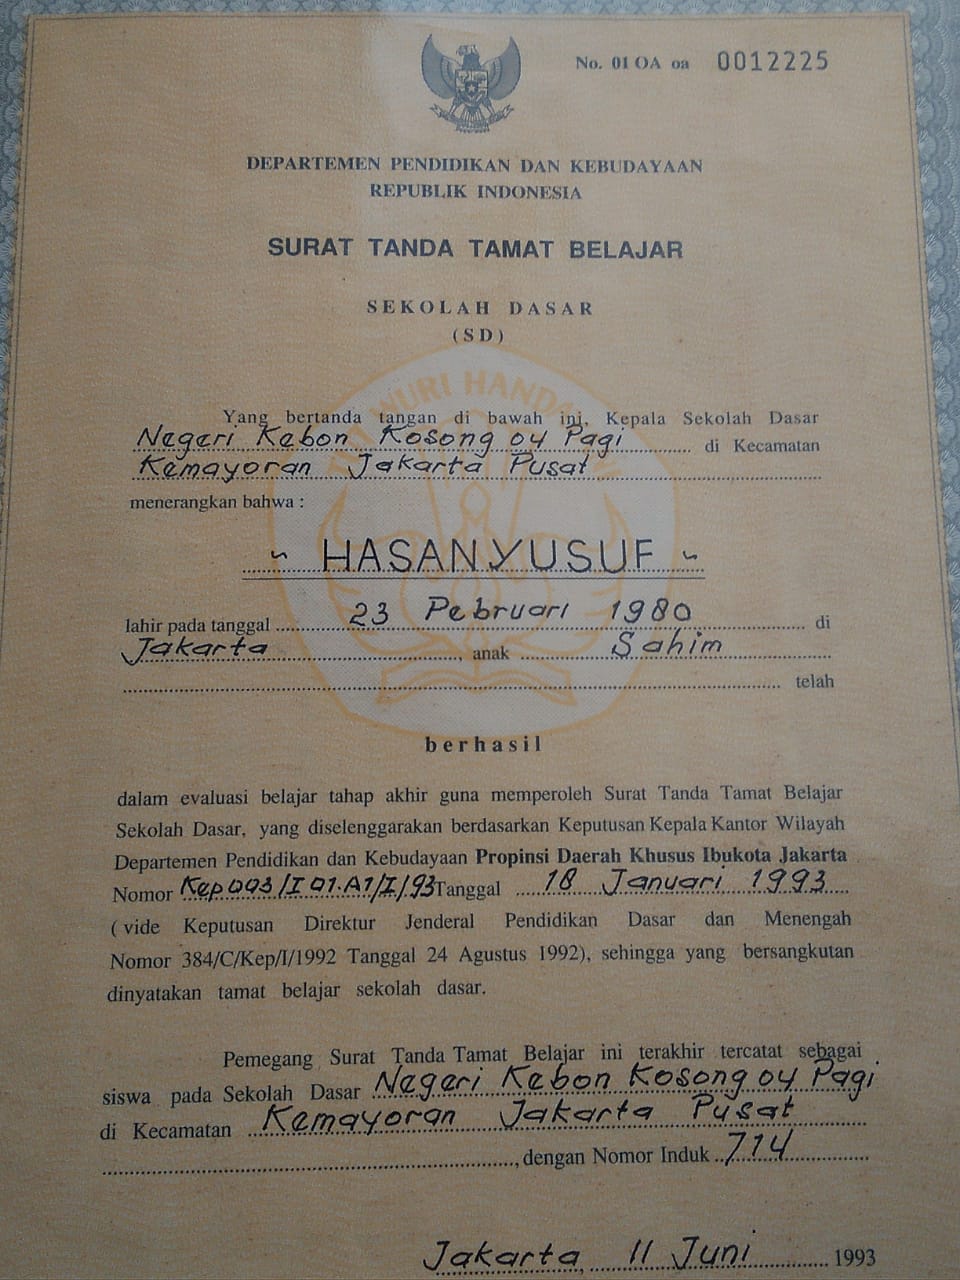 No. 01 OA oa 0012225
DEPARTEMEN PENDIDIKAN DAN KEBUDAYAAN
REPUBLIK INDONESIA
SURAT TANDA TAMAT BELAJAR
SEKOLAH DASAR
(SD)
Yang bertanda tangan di bawah ini, Kepala Sekolah Dasar
Negeri Kebon Kosong 04 Pagi di Kecamatan
Kemayoran Jakarta Pusat
menerangkan bahwa :
~ HASAN YUSUF ~
lahir pada tanggal 23 Pebruari 1980 di
Jakarta, anak Sahim
telah
berhasil
dalam evaluasi belajar tahap akhir guna memperoleh Surat Tanda Tamat Belajar
Sekolah Dasar, yang diselenggarakan berdasarkan Keputusan Kepala Kantor Wilayah
Departemen Pendidikan dan Kebudayaan Propinsi Daerah Khusus Ibukota Jakarta
Nomor Kep 003/I 01.A1/I/93 Tanggal 18 Januari 1993
( vide Keputusan Direktur Jenderal Pendidikan Dasar dan Menengah
Nomor 384/C/Kep/I/1992 Tanggal 24 Agustus 1992), sehingga yang bersangkutan
dinyatakan tamat belajar sekolah dasar.
Pemegang Surat Tanda Tamat Belajar ini terakhir tercatat sebagai
siswa pada Sekolah Dasar Negeri Kebon Kosong 04 Pagi
di Kecamatan Kemayoran Jakarta Pusat
, dengan Nomor Induk 714
Jakarta, 11 Juni 1993